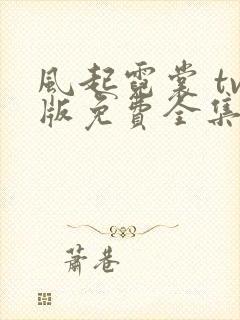 風起霓裳 tv
版免費全集
蕭巷